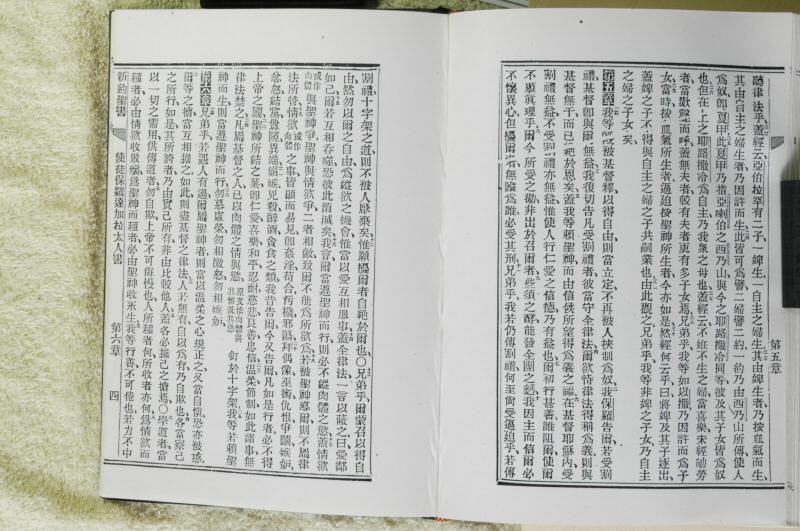 第五章
聽律法乎、蓋經云、亞伯拉罕有二子、一婢生、一自主之婦生、其由婢生者、乃按血氣而生、
其由自主之婦生者、乃因許而生、此皆可為譬、二婦譬二約、一約乃由西乃山所傳、使人
為奴、即夏甲、此夏甲乃指亞喇伯之西乃山、與今之耶路撒冷同等、彼及其子女皆為奴
也、但在上之耶路撒冷為自主、乃我衆之母也、蓋經云、不姙不生之婦當喜樂、未經劬勞
者當歡忻而呼、蓋無夫者較有夫者更有多子女焉、兄弟乎、我等如以撒、乃因許而為子
女、當時按血氣所生者、逼迫按聖神所生者、今亦如是、然經何云乎、曰、將婢及其子逐出、
蓋婢之子、不得與自主之婦之子共嗣業也、由此觀之、兄弟乎、我等非婢之子女、乃自主
之婦之子女矣、
第五章 我等既被基督釋以得自由、則當立定、不再被人挾制為奴、我保羅告爾、若受割
禮、基督即與爾無益、我復切告凡受割禮者、彼當守全律法、爾欲恃律法得稱為義、則與
基督無干、而已絕於恩矣、蓋我等賴聖神、由信俟所望得為義之福、在基督耶穌內、受
割禮無益、不受割禮亦無益、惟使人行仁愛之信德、乃有益也、爾初行甚善、誰阻爾使
不順眞理乎、今爾所受之勸、非出於召爾者、些須之酵、能發全團之麵、我因主而信爾必
不懷異心、但擾爾者、無論為誰、必受其刑、兄弟乎、我若仍傳割禮、何至尚受逼迫乎、若傳
割禮、十字架之道、則不被人厭棄矣、惟願擾爾者自絕於爾也、〇兄弟乎、爾蒙召以得自
由、然勿以爾之自由、為縱欲之機會、惟當以愛互相服事、蓋全律法一言以蔽之曰、愛鄰
如己、爾若互相吞噬、恐彼此消滅矣、我言、爾當遵聖神而行、則必不縱肉體之慾、蓋情欲
或作肉體與聖神爭、聖神與情欲爭、二者相敵、致爾不能為所欲為、若被聖神導爾、則不屬律
法所管、情欲或作肉體之事、皆顯而易見、即姦淫、苟合、污穢、邪蕩、拜偶像、巫術、仇恨、爭鬬、嫉妬、
忿怒、結黨、釁隙、異端、媢嫉、兇殺、醉酒、貪食之類、我昔告爾、今又告爾、凡如是行者、必不得
上帝之國、聖神所結之菓、即仁愛、喜樂、和平、忍耐、慈悲、良善、忠信、溫柔、節制、如此諸事、無
律法禁之、凡屬基督之人、已以肉體之情與慾、原文作肉體與其情及其慾釘於十字架、我等若賴聖
神而生、則當遵聖神而行、勿慕虛榮、勿相激怒、勿相嫉妬、
第六章 兄弟乎、若遇人有過、爾屬聖神者、則當以溫柔之心規正之、又當自愼、恐亦被惑、
爾等之擔當互相擔之、如此則盡基督之律法、人若無有、自以為有、乃自欺也、各當察己
之所行、如是其所誇者、乃由實己所有、非由比較他人、蓋各必擔己之擔焉、〇學道者當
以一切之需用供傳道者、勿自欺、上帝不可侮慢也、人所種者何、所收者亦何、為情欲而
種者、必由情欲收敗壞、為聖神而種者、必由聖神收永生、我等行善不可倦也、若力不中
新約聖書　使徒保羅達加拉太人書　第六章　四